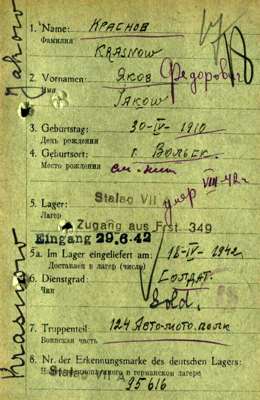 1. Name: КРАСНОВ
Фамилия
KRASNOW
2. Vornamen: ЯКОВ Федорович
Имя
JAKOW
3. Geburtstag: 30-IV-1910
День рождения
4. Geburtsort: г. Вольск.
Место рождения см.
умер VIII-42г
5. Lager: Stalag VII
Лагер
Zugang aus Frst 349
Eingang 29.6.42
5a. Im Lager eingeliefert am: 18-IV-1942
Доставлен в лагер (число)
6. Dienstgrad: СОЛДАТ.
Чин
Sold.
7. Truppenteil: 124 Авто-мото. полк
Воинская часть
8. Nr. der Erkennungsmarke des deutschen Lagers:
Stalag VII A в германском лагере
95616
Jakow
Krasnow